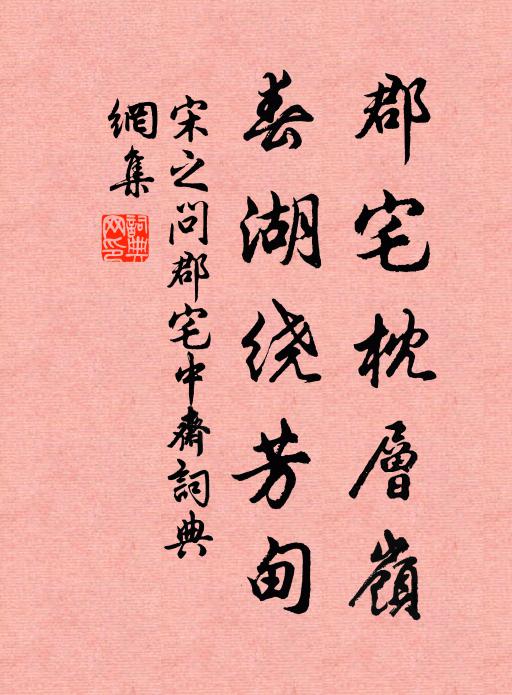 郡宅枕層嶺
春湖绕芳甸
宋之问郡宅中齋詞典
網集
詞典
网印